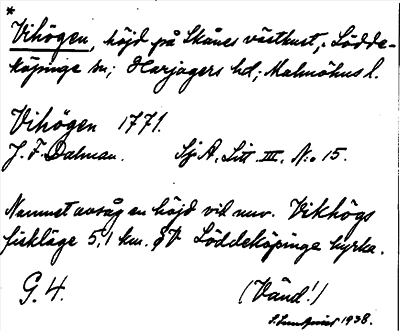 *
Vihögen, höjd på Skånes västkust, Lödde-
köpinge sn; Harjagers hd; Malmöhus l.
Vihögen 1771.
J. F. Dalman. Sj. A. Litt. III, N:o 15.
Namnet avsåg en höjd vid nuv. Vikhögs
fiskläge 5,1 km. V Löddeköpinge kyrka.
G. 4. (Vänd!)
1938.